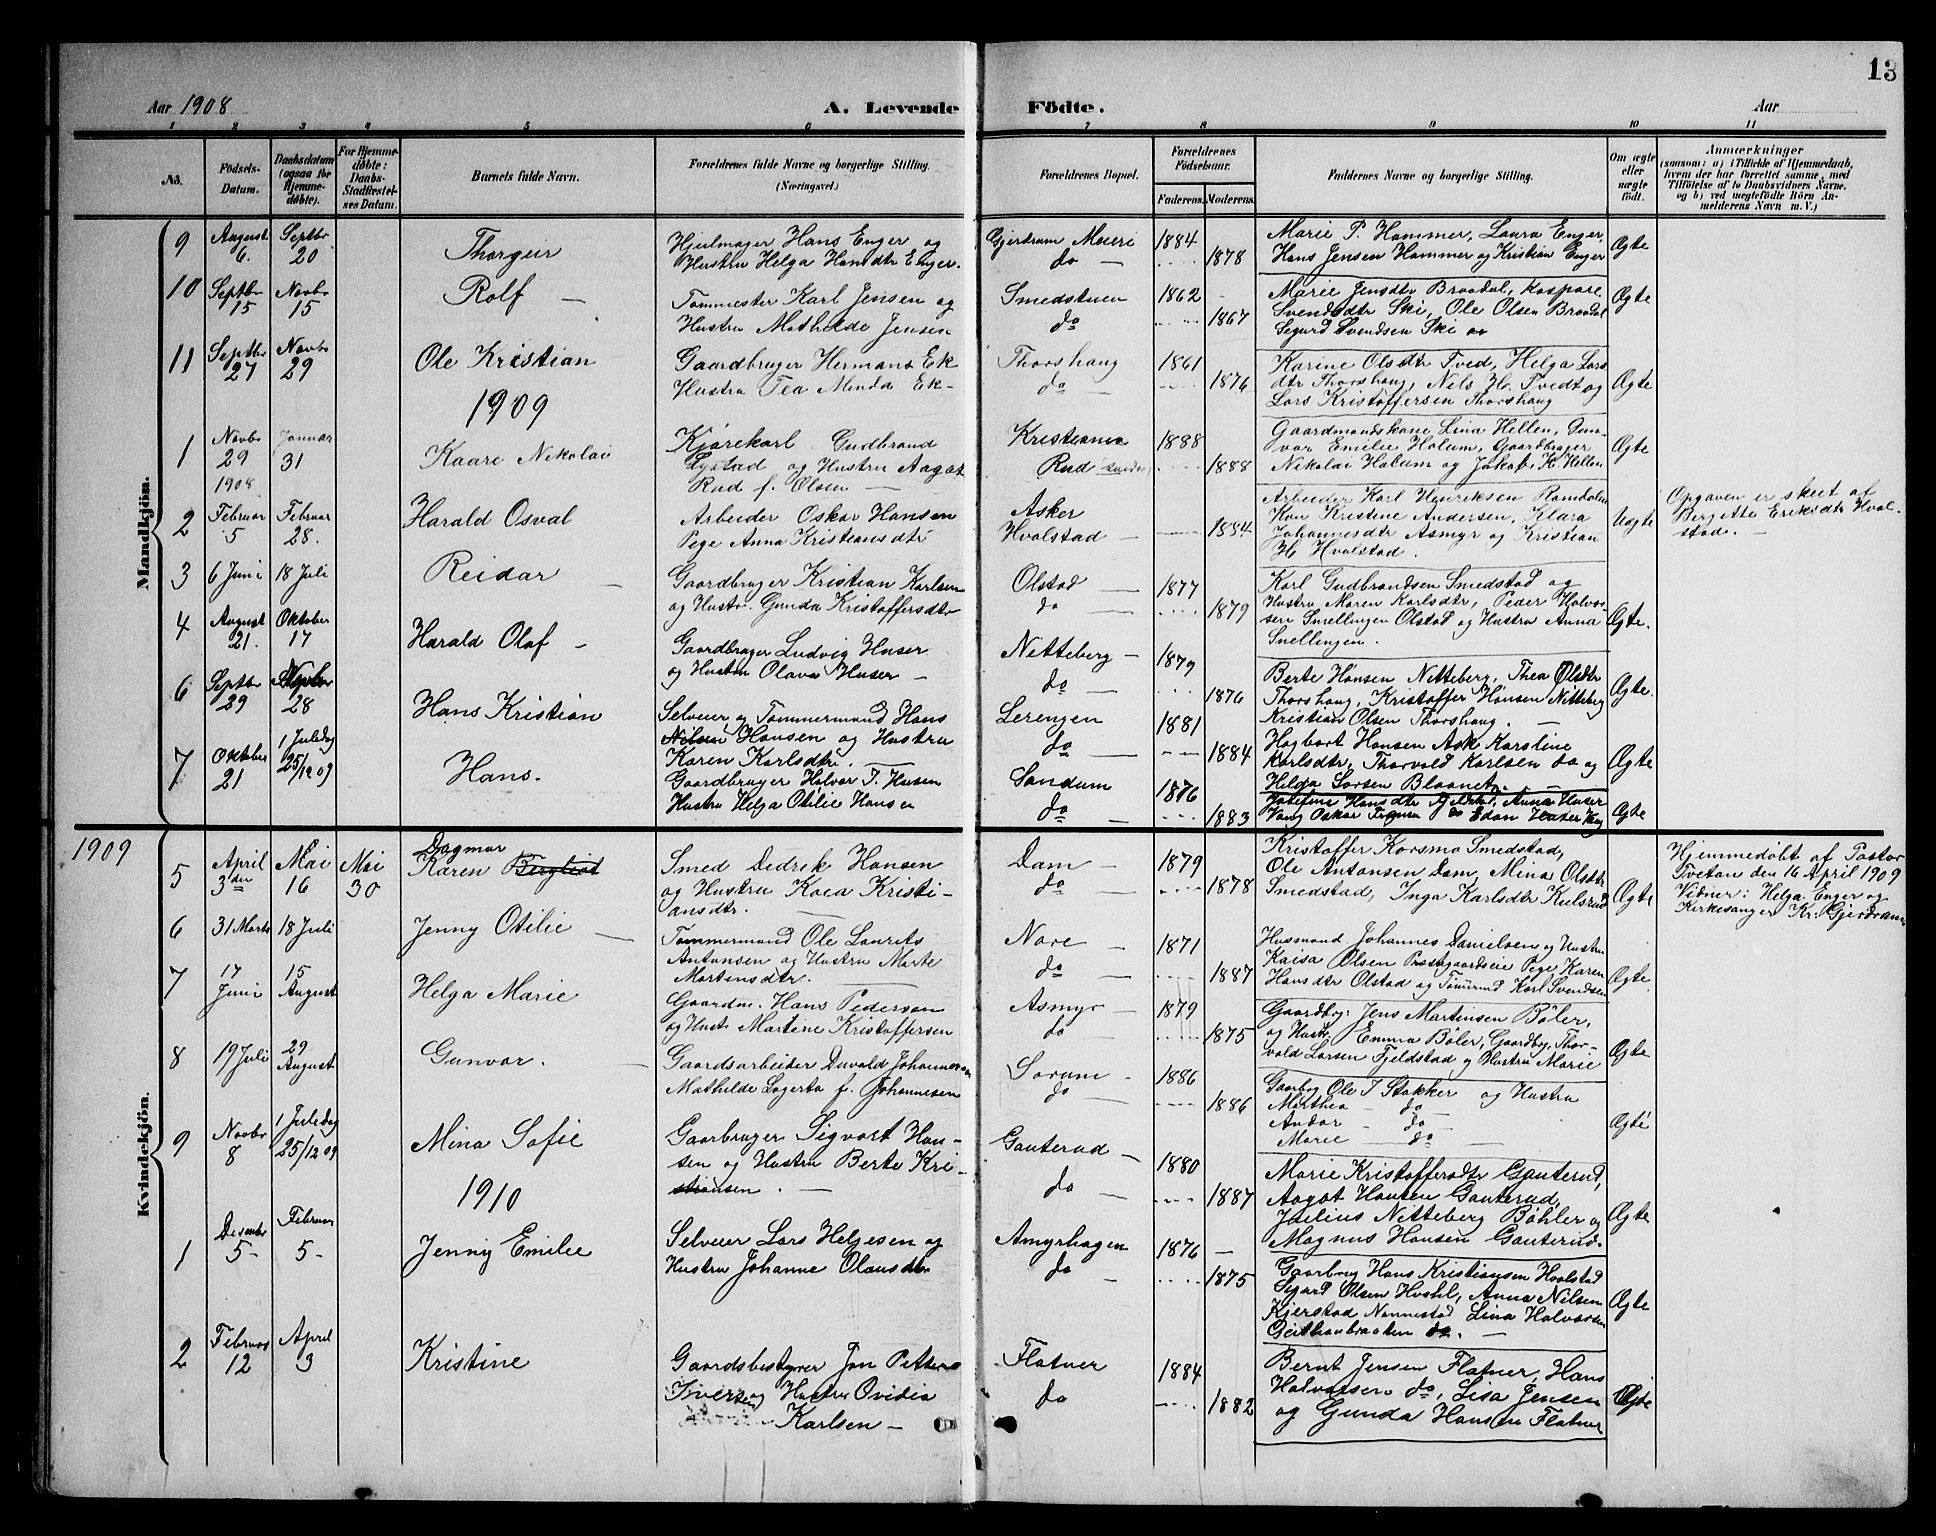 13
Aar 1908
A. Levende Födte.
Aar
1 2 3 4 5 6 7 8 9 10 11
No.
Födsels-Datum.
Daabsdatum (ogsaa for Hjemmedöbte).
For Hjemmedöbte: Daabs-Stadfæstelses Datum.
Barnets fulde Navn.
Forældrenes fulde Navne og borgerlige Stilling.
(Næringsvei.)
Forældrenes Bopæl.
Forældrenes Födselsaar.
Faderens. Moderens.
Faddernes Navne og borgerlige Stilling.
Om ægte eller uægte födt.
Anmærkninger
(saasom: a) i Tilfælde af Hjemmedaab, hvem der har forrettet samme, med Tilföielse af to Daabsvidners Navne, og b) ved uægtefödte Börn Anmelderens Navn m.V.)
Mandkjön.
9 August 6 Septbr 20 Thorgeir
Hjulmager Hans Enger og
Hustru Helga Hansdtr Enger.
Gjerdrum Meieri 1884
do — 1878
Marie P. Hammer, Laura Enger,
Hans Jensen Hammer og Kristian Enger
Ægte
10 Septbr 15 Novbr 15 Rolf —
Tømmester Karl Jensen og
Hustru Mathilde Jensen
Smedstuen 1862
do 1867
Marie Jensdtr Braadal, Kaspare
Svendsdtr Ski, Ole Olsen Braadal
Segurd Svendsen Ski
Ægte
11 Septbr 27 Novbr 29 Ole Kristian
Gaardbruger Hermans Ek
Hustru Tea Minda Ek-
Thorshaug 1861
do 1876
Karine Olsdtr Tved, Helga Lars
dtr Thorshaug, Nils H. Tvedt og
Lars Kristoffersen Thorshaug
Ægte
1909
1 Novbr 29 1908 Januar 31 Kaare Nikolai
Kjørekarl Gudbrand
Lystad og Hustru Aagot
Rud f. Olsen —
Kristiania 1888
Rud 1888
Gaardmandskone Lina Hellen, Gun-
vor Emilie Holum, Gaardbruger
Nikolai Holum og Jakob H. Hellen
Ægte
2 Februar 5 Februar 28. Harald Osval
Arbeider Oskar Hansen
Pege Anna Kristiansdtr
Asker
Hvalstad — 1884
Arbeider Karl Henriksen
Kon Kristine Andersen, Klara
Johannesdtr Asmyr og Kristian
H. Hvalstad.
Uægte
Opgaven er skeet af
Bergitte Eriksdtr Hval-
stad. —
3 6 Juni 18 Juli Reidar —
Gaardbruger Kristian Karlsen
og Hustr. Gunda Kristoffersdtr
Olstad 1877
do 1879
Karl Gudbrandsen Smedstad og
Hustru Maren Karlsdtr, Peder Halvor
sen Snellingen Olstad og Hustru Anna
Snellingen.
Ægte.
4 August 21. Oktober 17 Harald Olaf —
Gaardbruger Ludvig Huser
og Hustru Olava Huser —
Netteberg — 1879
do — 1876
Berte Hansen Netteberg, Thea Olsdtr
Thorshaug, Kristoffer Hansen Nitteberg
Kristian Olsen Thorshaug. —
Ægte.
6 Septbr 29 28 Hans Kristian
Selveier og Tømmermand Hans
Nilsen Hansen og Hustru
Karen Karlsdtr. —
Lerengen 1881
do 1884
Hagbart Hansen Ask Karoline
Karlsdtr, Thorvald Karlsen do og
Helga Larsen Blaanet.
Ægte
7 Oktober 21 1 Juledag 25/12 09 Hans.
Gaardbruger Halvor T. Husen
Hustru Helga Otilie Hansen
Sandum 1876
do 1883
Josefine Hansdtr Anna Huser
Vang Oskar do Edan Huser
Ægte
Kvindekjön.
1909
5 April 3die Mai 16 Mai 30 Dagmar
Karen Bergliot
Smed Dedrik Hansen
og Hustru Kaca Kristi-
ansdtr. —
Dam — 1879
do 1878
Kristoffer Korsmo Smedstad,
Ole Antonsen Dam, Mina Olsdtr
Smedstad, Inga Karlsdtr Kulsrud
Ægte
Hjemmedøbt af Pastor
Tveton den 16 April 1909
Vidner: Helga Enger og
Kirkesanger Kr. Gjerdrum
6 31 Marts 18 Juli Jenny Otilie —
Tømmermand Ole Laurits
Antonsen og Hustru Marte
Martensdtr.
Nare — 1871
do — 1887
Husmand Johannes Danielsen og Hustru
Kaisa Olsen Præstgaardseie Pege Karen
Hansdtr Olstad og Tømrmd Karl Svendsen
Ægte
7 17 Juni 15 August Helga Marie
Gaardm. Hans Pedersen
og Hust. Martine Kristoffersen
Asmyr 1879
do 1875
Gaardbg: Jens Martinsen Bøler,
og Hustr. Emma Bøler, Gaardbg. Thor-
vald Larsen Fjeldstad og Hustru Marie
Ægte
8 19 Juli 29 August Gunvor. —
Gaardsarbeider Davald Johannesen
Mathilde Lagerta f. Johannesen
Sorum — 1886
do 1886
Gaarbrg Ole T Stokker og Hustru
Marthea — do
Andor — do
Marie — do —
Ægte
9 Novbr 8 1 Juledag 25/12 09 Mina Sofie
Gaarbruger Sigvart Han-
sen og Hustru Berte Kri-
stiansen. —
Gauterud — 1880
do 1887
Marie Kristoffersdtr Gauterud,
Aagot Hansen Gauterud,
Julius Netteberg Bøhler og
Magnus Hansen Gauterud.
Ægte
1910
1 Desember 5 Februar 5 Jenny Emilie
Selveier Lars Helgesen og
Hustru Johanne Olausdtr
Amyrhagen 1876 —
do 1875
Gaarbrug Hans Kristiansen Hvalstad
Sigurd Olsen Anna Nilsen
Kjerstad Nannestad Lina Halvorsen
Geithanbraaten do. —
Ægte
2 Februar 12 April 3 Kristine
Gaardsbestyrer Jon Petters
Iversen og Hustru Ovidia
Karlsen —
Flatner 1884
do 1882
Bernt Jensen Flatner, Hans
Halvorsen do, Lisa Jensen
og Gunda Hansen Flatner
Ægte